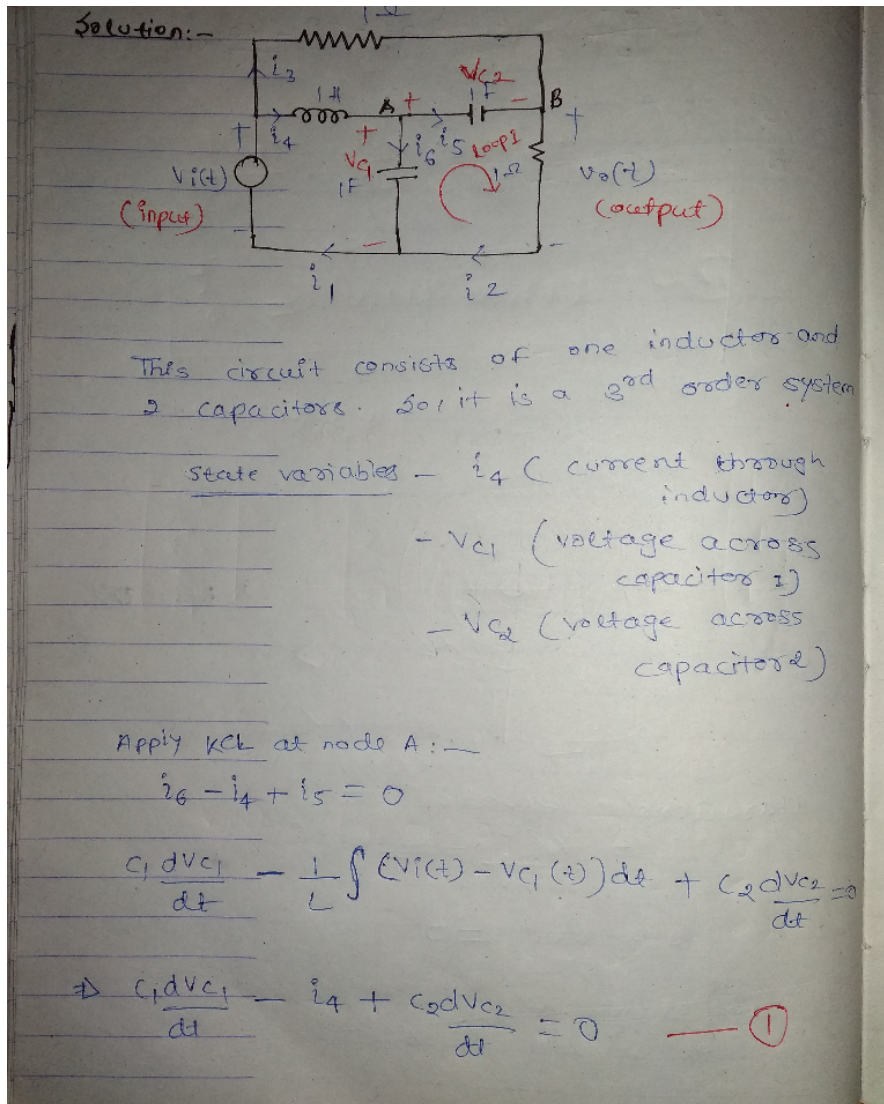 Solution:-
1Ω
i3
VC2
1F
1H
A
+
-
B
+
i4
+
i6
i5
Loop1
+
Vi(t)
VC1
1F
1Ω
vo(t)
(input)
(output)
-
-
-
i1
i2
This circuit consists of one inductor and
2 capacitors. So, it is a 3rd order system
State variables - i4 ( current through
inductor)
- VC1 (voltage across
capacitor 1)
- VC2 (voltage across
capacitor 2)
Apply KCL at node A :-
i6 - i4 + i5 = 0
C1 dVC1/dt - 1/L ∫ (Vi(t) - VC1 (t)) dt + C2 dVC2/dt = 0
⇒ C1 dVC1/dt - i4 + C2 dVC2/dt = 0 —— ①